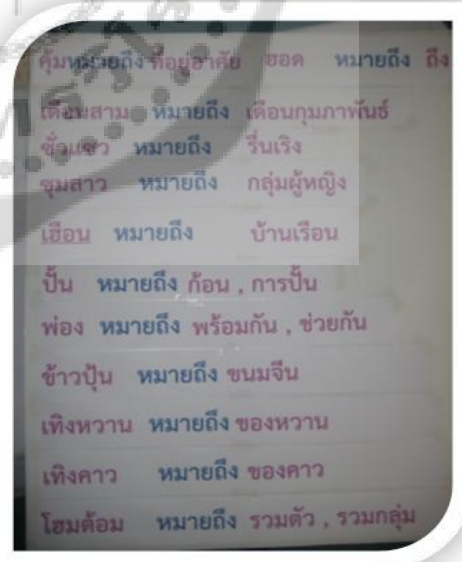 คุ้มหมายถึง ที่อยู่อาศัย ฮอด หมายถึง ถึง
เดือนสาม หมายถึง เดือนกุมภาพันธ์
ซั่วแซว หมายถึง รื่นเริง
ซุมสาว หมายถึง กลุ่มผู้หญิง
เฮือน หมายถึง บ้านเรือน
ปั้น หมายถึง ก้อน , การปั้น
พ่อง หมายถึง พร้อมกัน , ช่วยกัน
ข้าวปุ้น หมายถึง ขนมจีน
เทิงหวาน หมายถึง ของหวาน
เทิงคาว หมายถึง ของคาว
โฮมต้อม หมายถึง รวมตัว , รวมกลุ่ม